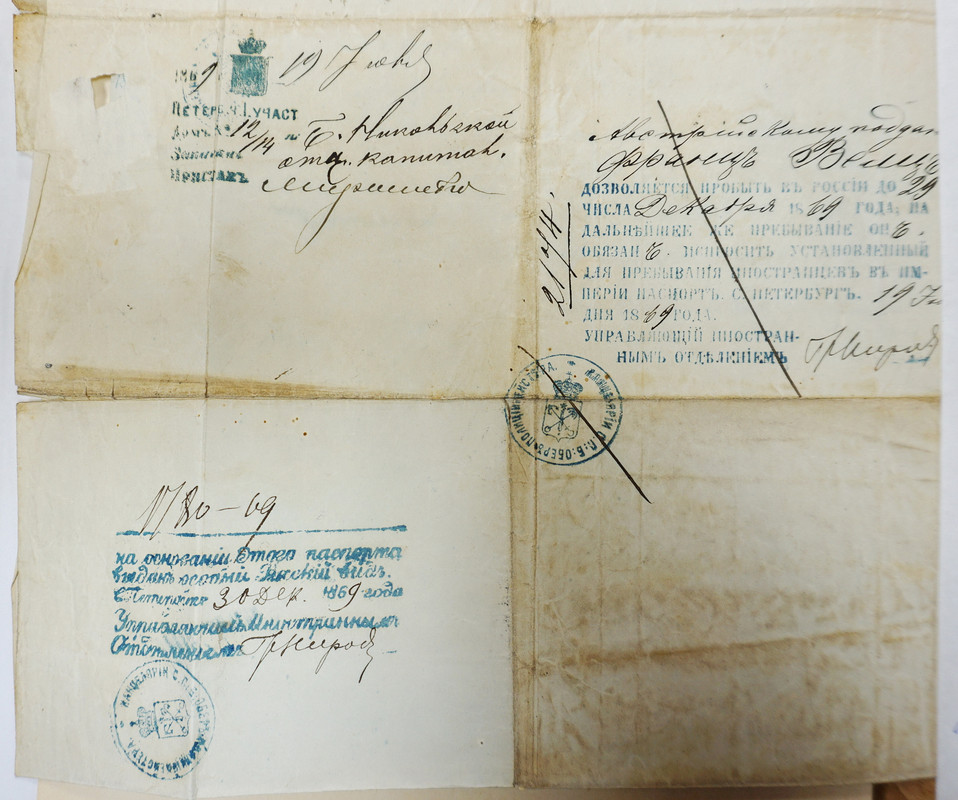 1869 19 Июня
ПЕТЕРБ. Ч. I. УЧАСТ
ДОМЪ № 12/14 по Б. Никольской
отст. капитан.
ПРИСТАВЪ
Австрійскому поддан
Францъ
ДОЗВОЛЯЕТСЯ ПРОБЫТЬ ВЪ РОССІИ ДО 29
ЧИСЛА Декабря 1869 ГОДА; НА
ДАЛЬНѢЙШЕЕ ЖЕ ПРЕБЫВАНІЕ ОНЪ.
ОБЯЗАНЪ. ИСПРОСИТЬ УСТАНОВЛЕННЫЙ
ДЛЯ ПРЕБЫВАНІЯ ИНОСТРАНЦЕВЪ ВЪ ИМ-
ПЕРІИ ПАСПОРТЪ. С. ПЕТЕРБУРГЪ. 19
ДНЯ 1869 ГОДА.
УПРАВЛЯЮЩІЙ ИНОСТРАН-
НЫМЪ ОТДѢЛЕНІЕМЪ
2174.
КАНЦЕЛЯРІИ С.П:Б: ОБЕРЪ-ПОЛИЦІЙМЕЙСТЕРА.
на основаніи Этого паспорта
выданъ особый Русскій видъ.
30 Дек. 1869 года
Управляющій Иностраннымъ
Отдѣленіемъ
КАНЦЕЛЯРІИ С.П.Б. ОБЕРЪ-ПОЛИЦІЙМЕЙСТЕРА.